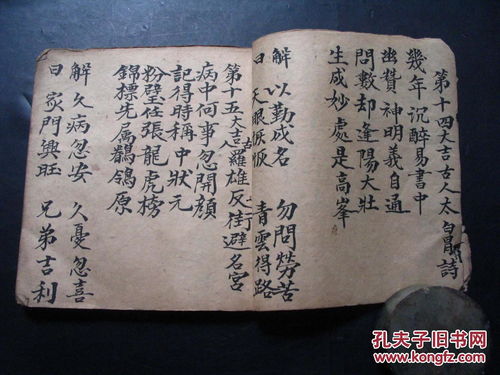 第十四大吉古人太白冒詩
幾年沉醉易書中
幽贊神明義自通
問數却逢陽大壯
生成妙處是高峯
解 以勤成名 勿問勞苦
曰 天眼恢恢 青雲得路
第十五大吉古人羅雄反卦避名宮
病中何事忽開顔
記得時稱中狀元
粉壁任張龍虎榜
錦標先属鶺鴒原
解 久病忽安 久憂忽喜
曰 家門興旺 兄弟吉利
孔夫子旧书网
www.kongfz.com